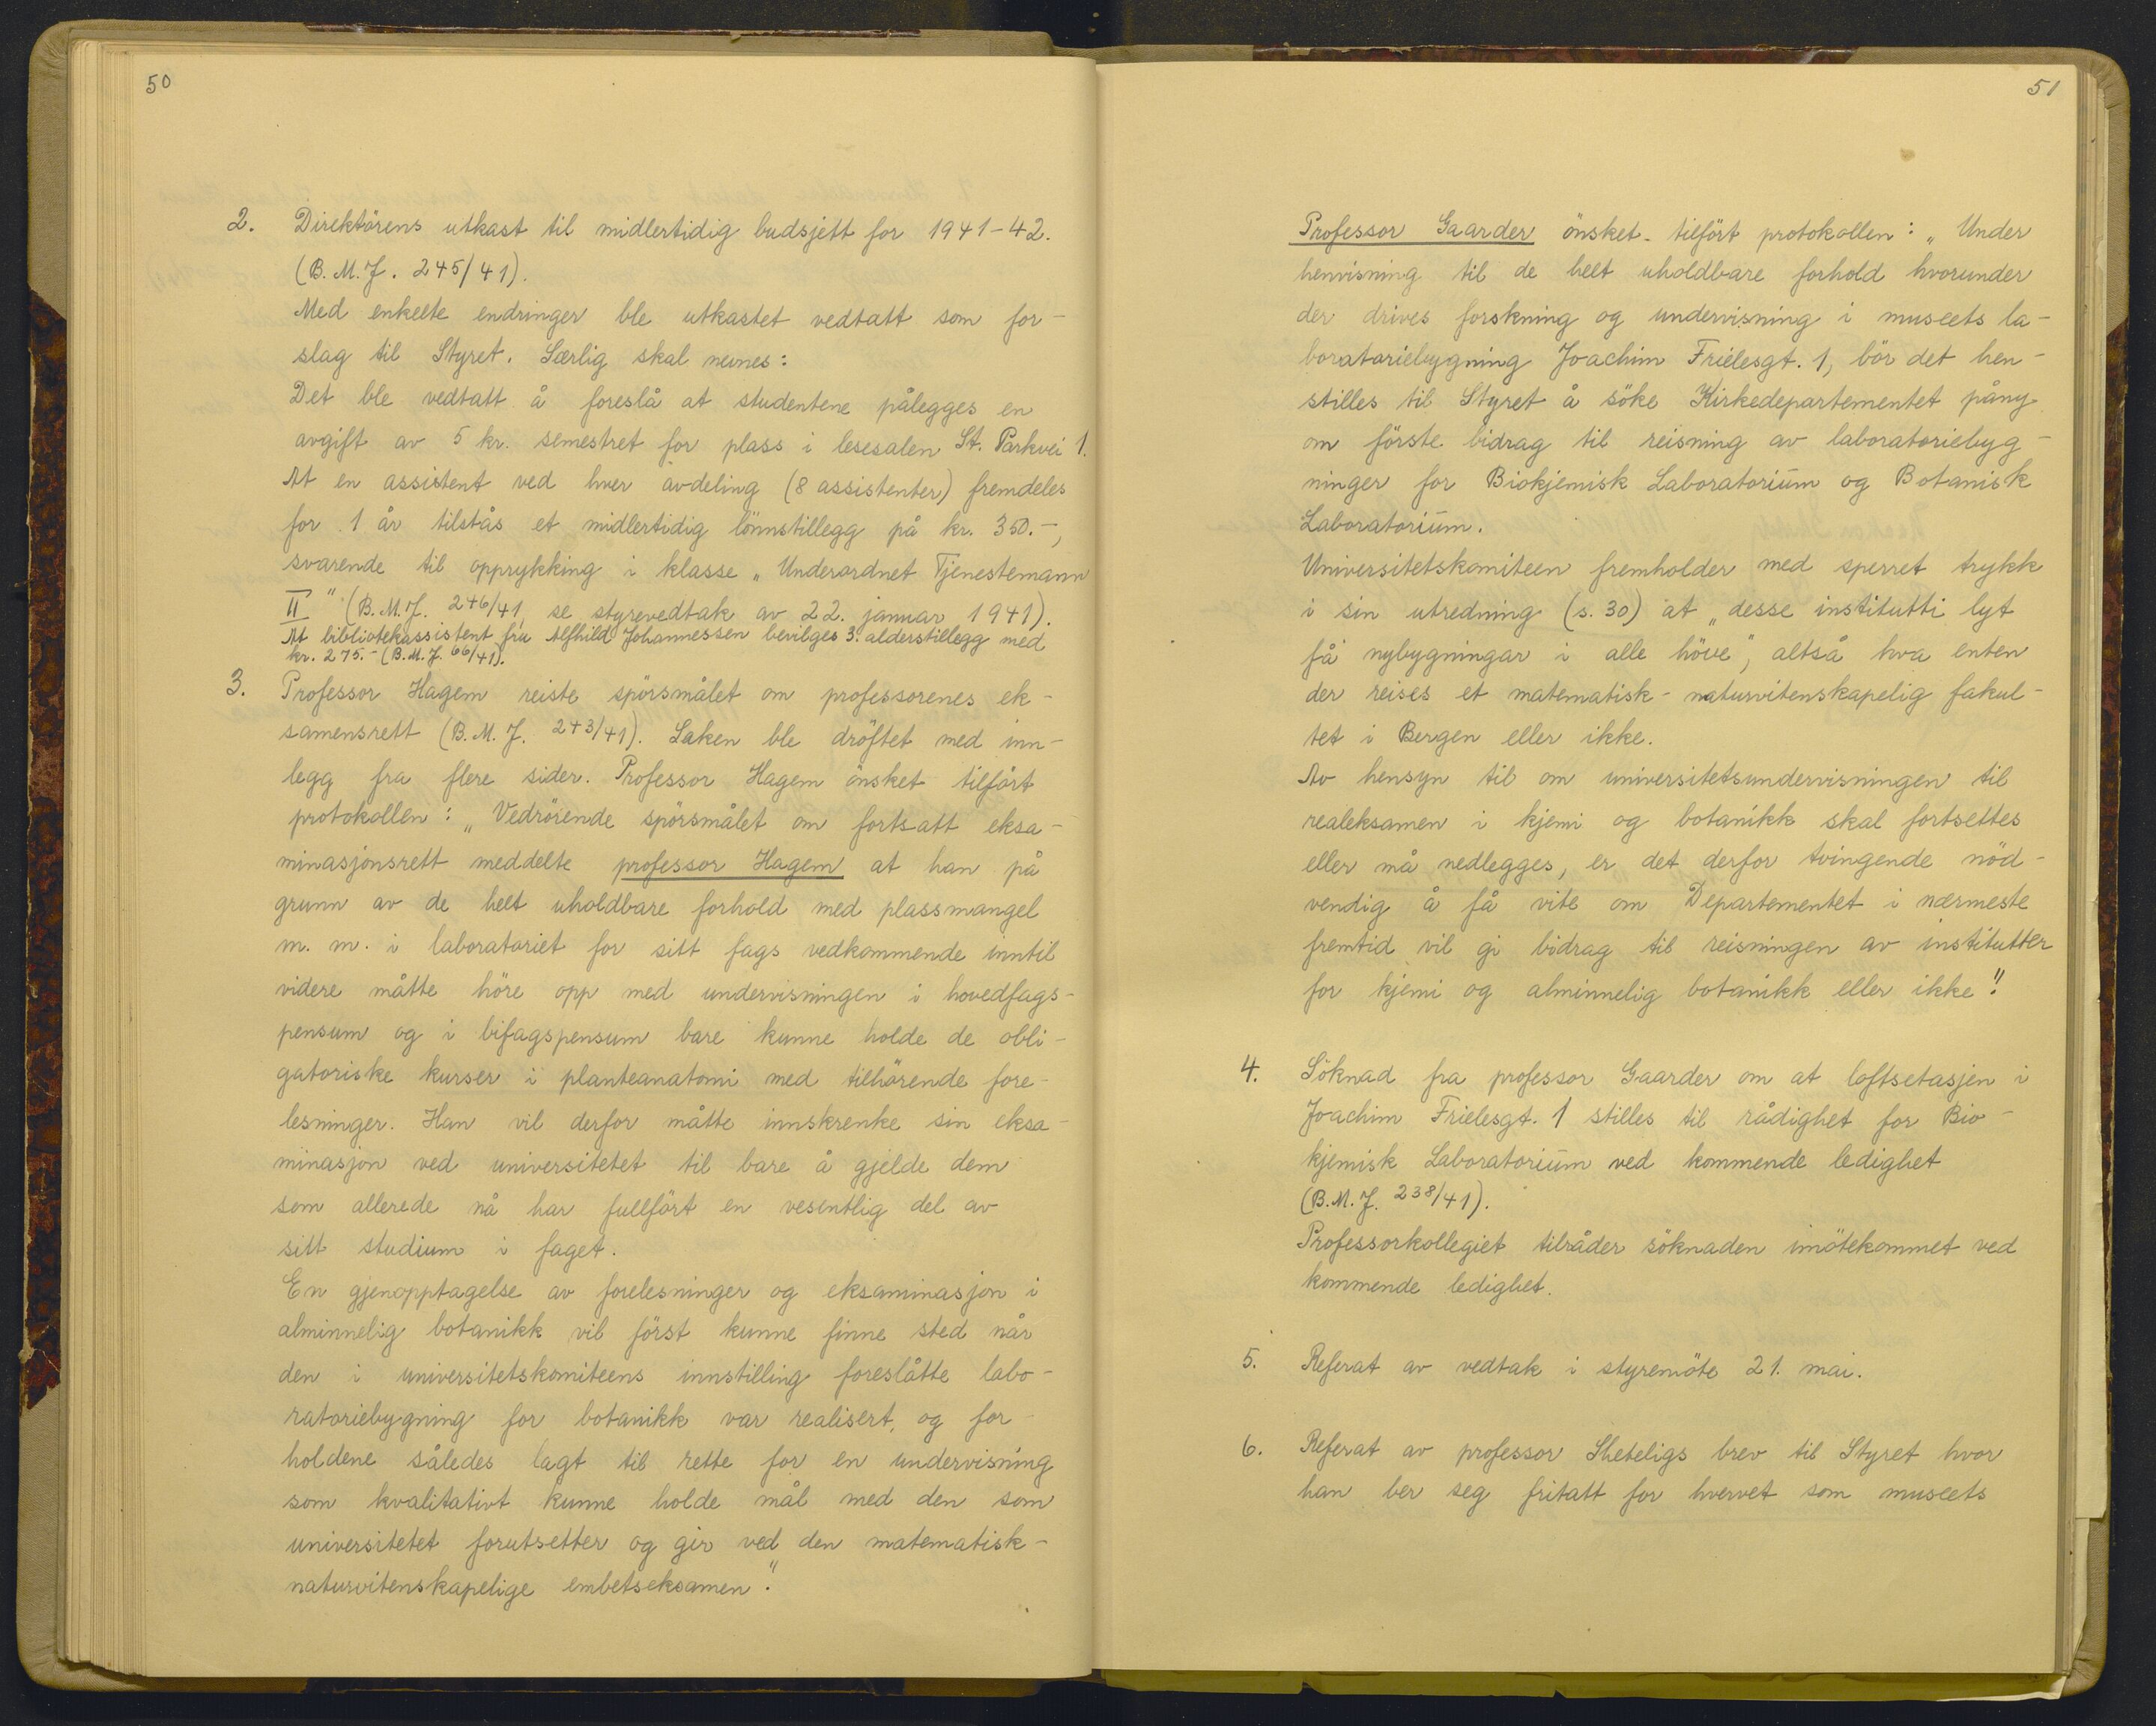 50
2. Direktörens utkast til midlertidig budsjett for 1941-42.
(B.M.J. 245/41).
Med enkelte endringer ble utkastet vedtatt som for-
slag til Styret. Særlig skal nevnes:
Det ble vedtatt å foreslå at studentene pålegges en
avgift av 5 kr. semestret for plass i lesesalen St. Parkvei 1.
At en assistent ved hver avdeling (8 assistenter) fremdeles
for 1 år tilstås et midlertidig lönnstillegg på kr. 350.-,
svarende til opprykking i klasse „Underordnet Tjenestemann
II" (B.M.J. 246/41, se styrevedtak av 22. januar 1941).
At bibliotekassistent fru Alfhild Johannessen bevilges 3. alderstillegg med
kr. 275.- (B.M.J. 66/41).
3. Professor Hagem reiste spörsmålet om professorenes ek-
samensrett (B.M.J. 243/41). Saken ble dröftet med inn-
legg fra flere sider. Professor Hagem önsket tilfört
protokollen: „Vedrörende spörsmålet om fortsatt eksa-
minasjonsrett meddelte professor Hagem at han på
grunn av de helt uholdbare forhold med plassmangel
m. m. i laboratoriet for sitt fags vedkommende inntil
videre måtte höre opp med undervisningen i hovedfags-
pensum og i bifagspensum bare kunne holde de obli-
gatoriske kurser i planteanatomi med tilhörende fore-
lesninger. Han vil derfor måtte innskrenke sin eksa-
minasjon ved universitetet til bare å gjelde dem
som allerede nå har fullfört en vesentlig del av
sitt studium i faget.
En gjenopptagelse av forelesninger og eksaminasjon i
alminnelig botanikk vil först kunne finne sted når
den i universitetskomiteens innstilling foreslåtte labo-
ratoriebygning for botanikk var realisert, og for-
holdene således lagt til rette for en undervisning
som kvalitativt kunne holde mål med den som
universitetet forutsetter og gir ved den matematisk-
naturvitenskapelige embetseksamen".
51
Professor Gaarder önsket tilfört protokollen: „Under
henvisning til de helt uholdbare forhold hvorunder
der drives forskning og undervisning i museets la-
boratoriebygning Joachim Frielesgt. 1, bör det hen-
stilles til Styret å söke Kirkedepartementet påny
om förste bidrag til reisning av laboratoriebyg-
ninger for Biokjemisk Laboratorium og Botanisk
Laboratorium.
Universitetskomiteen fremholder med sperret trykk
i sin utredning (s. 30) at „desse institutti lyt
få nybygningar i alle höve", altså hva enten
der reises et matematisk-naturvitenskapelig fakul-
tet i Bergen eller ikke.
Av hensyn til om universitetsundervisningen til
realeksamen i kjemi og botanikk skal fortsettes
eller må nedlegges, er det derfor tvingende nöd-
vendig å få vite om Departementet i nærmeste
fremtid vil gi bidrag til reisningen av institutter
for kjemi og alminnelig botanikk eller ikke".
4. Söknad fra professor Gaarder om at loftsetasjen i
Joachim Frielesgt. 1 stilles til rådighet for Bio-
kjemisk Laboratorium ved kommende ledighet
(B.M.J. 238/41).
Professorkollegiet tilråder söknaden imötekommet ved
kommende ledighet.
5. Referat av vedtak i styremöte 21. mai.
6. Referat av professor Sheteligs brev til Styret hvor
han ber seg fritatt for hvervet som museets